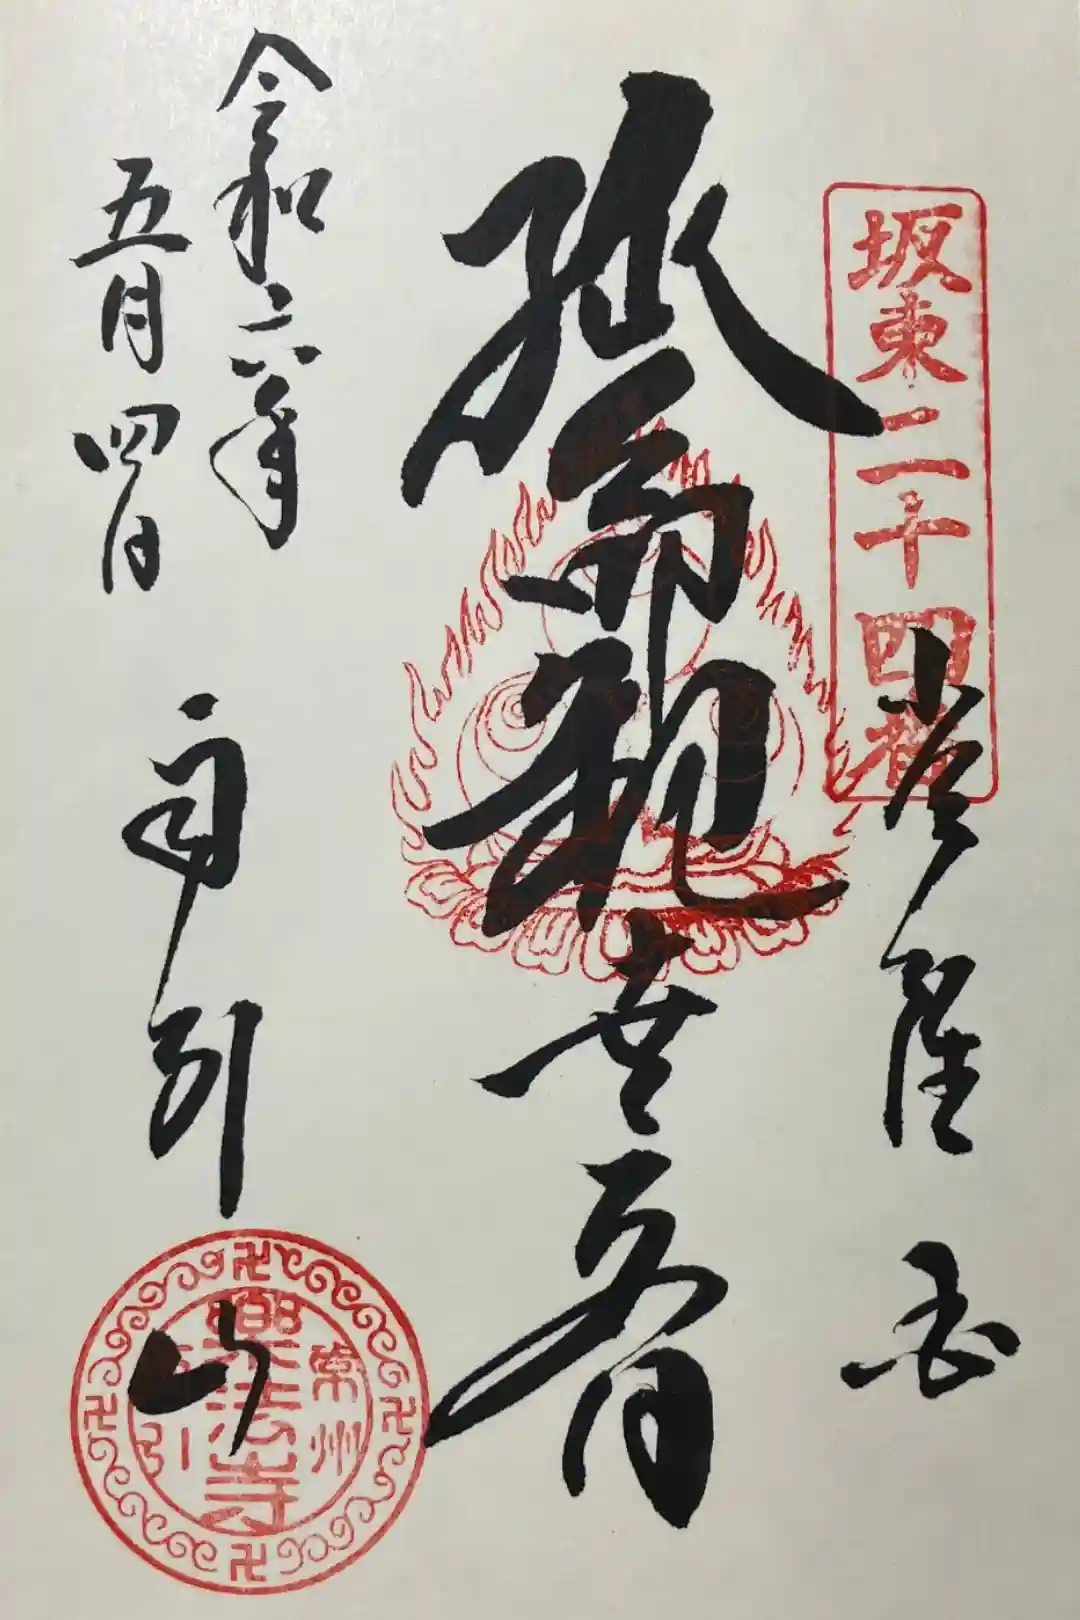 坂東二十四番
常陸国
延命観世音
令和六年
五月四日
雨引山
常州
樂法寺
雨引